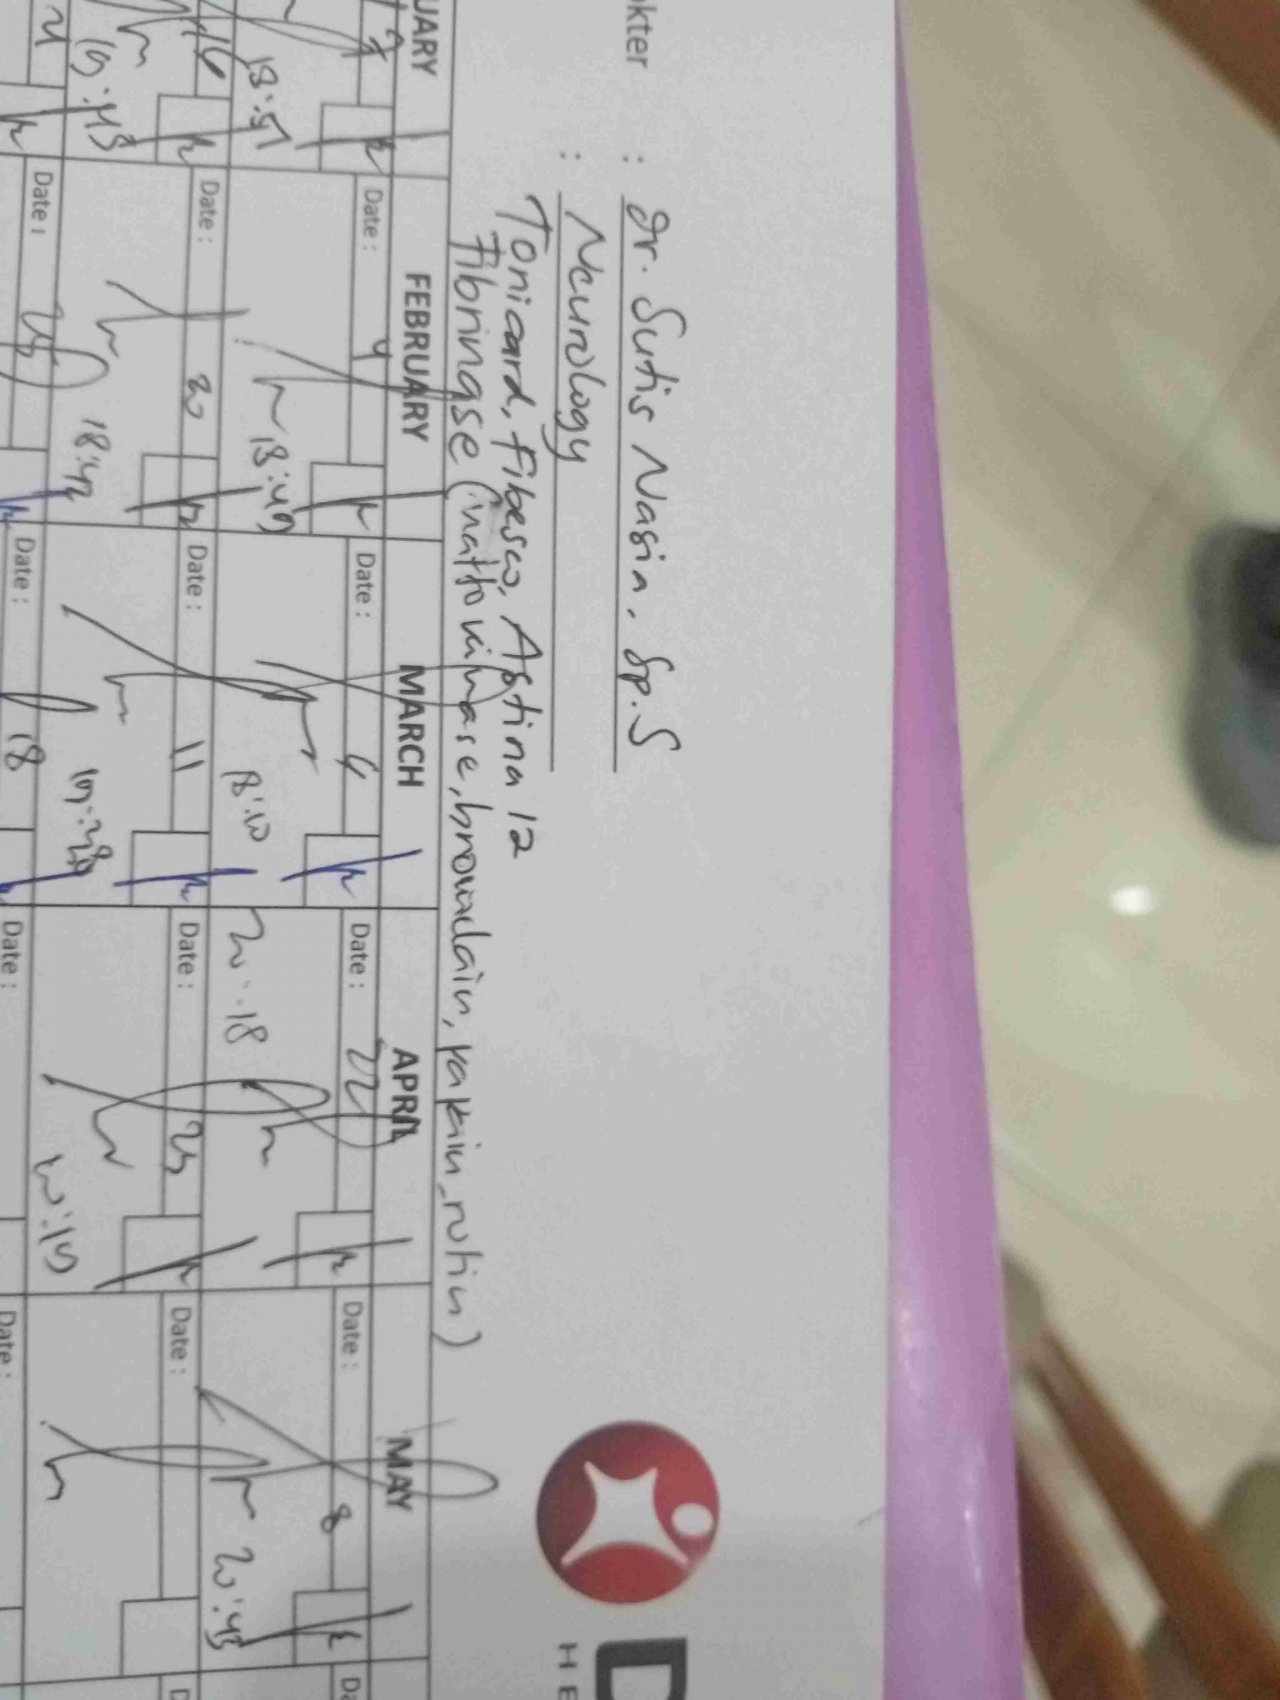 kter : dr. Sutis Nasin, Sp.S
: Neurology
Tonicard, Fibesco, Astina 12
Fibringse (nattokinase, bromelain, rutin)
D
HE
UARY FEBRUARY MARCH APRIL MAY
7 Date: 4 Date: 4 Date: 22 Date: 8 Da
18:51 18:49 18:10 20:18 20:43
16 Date: 20 Date: 11 Date: 25 Date: D
19:43 18:42 19:20 20:19
21 Date: 25 Date: 18 Date: Date: